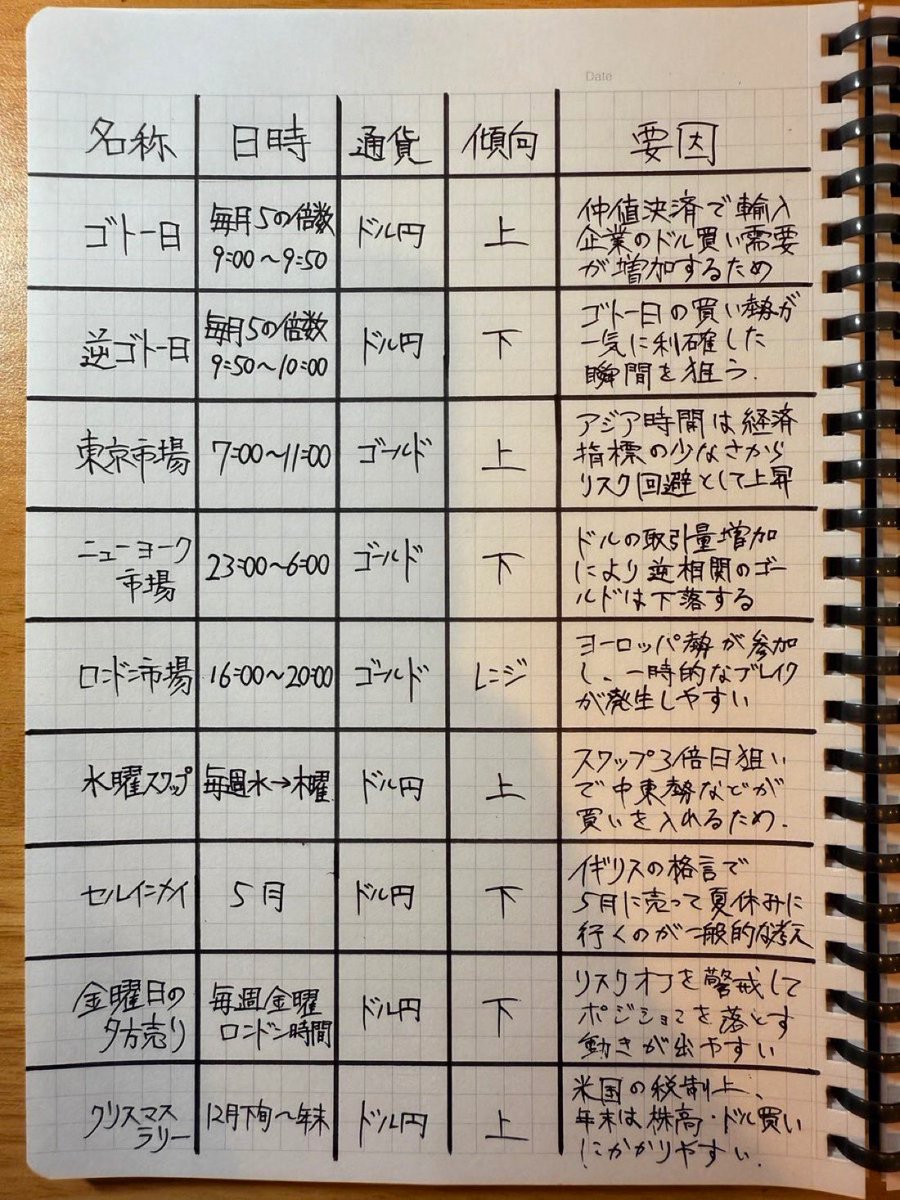 Date
名称 日時 通貨 傾向 要因
ゴトー日
毎月5の倍数
9:00～9:50
ドル円
上
仲値決済で輸入
企業のドル買い需要
が増加するため
逆ゴトー日
毎月5の倍数
9:50～10:00
ドル円
下
ゴトー日の買い勢が
一気に利確した
瞬間を狙う.
東京市場
7:00～11:00
ゴールド
上
アジア時間は経済
指標の少なさから
リスク回避として上昇
ニューヨーク
市場
23:00～6:00
ゴールド
下
ドルの取引量増加
により逆相関のゴー
ルドは下落する
ロンドン市場
16:00～20:00
ゴールド
レンジ
ヨーロッパ勢が参加
し、一時的なブレイク
が発生しやすい
水曜スワップ
毎週水→木曜
ドル円
上
スワップ3倍日狙い
で中東勢などが
買いを入れるため.
セルインメイ
5月
ドル円
下
イギリスの格言で
5月に売って夏休みに
行くのが一般的な考え
金曜日の
夕方売り
毎週金曜
ロンドン時間
ドル円
下
リスクオフを警戒して
ポジションを落とす
動きが出やすい
クリスマス
ラリー
12月下旬～年末
ドル円
上
米国の税制上、
年末は株高・ドル買い
にかかりやすい.